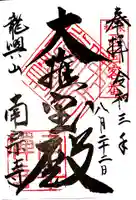 奉拝 令和三年
八月二十二日
大雄宝殿
龍興山
南宗寺